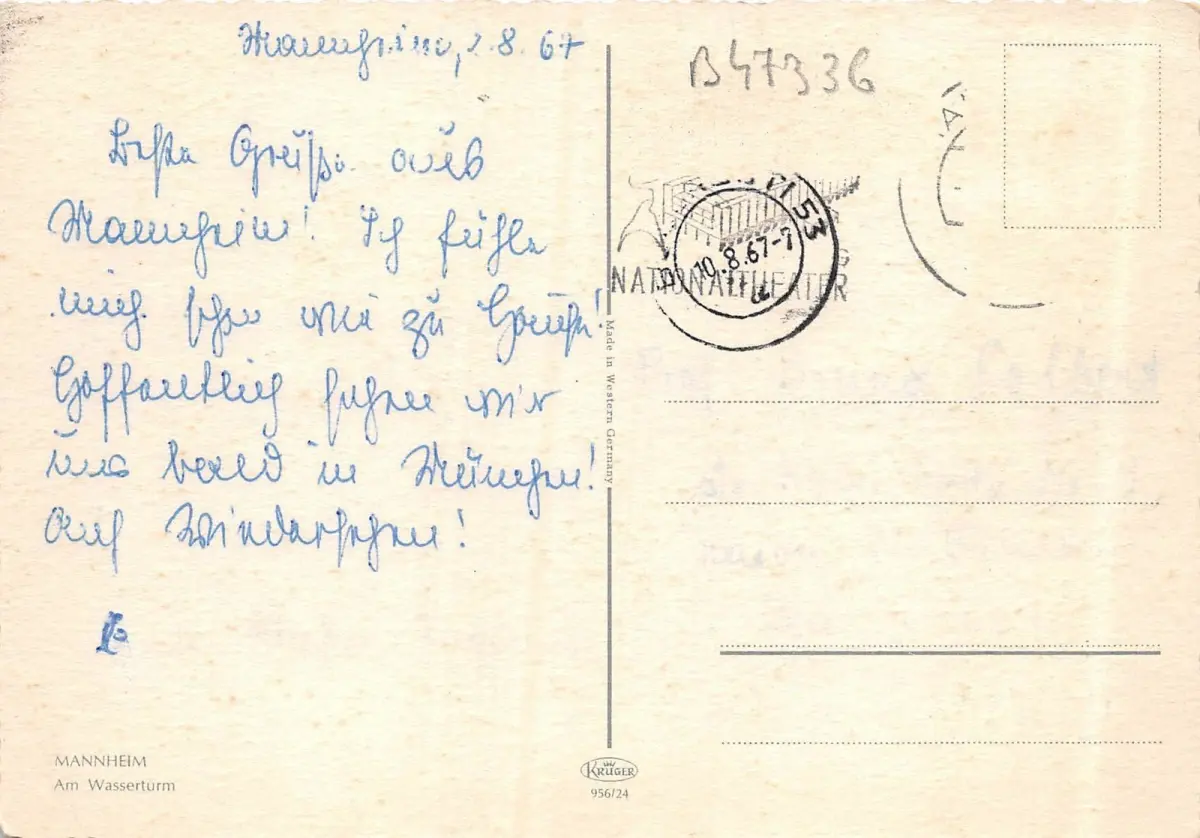 Mannheim, 2.8.67
Beste Grüße aus
Mannheim! Ich fühle
mich schon wie zu Hause!
Hoffentlich sehen wir
uns bald in München!
Auf Wiedersehen!
MANNHEIM
Am Wasserturm
Made in Western Germany
KRÜGER
956/24
B47336
53
10.8.67-7
NATIONALTHEATER